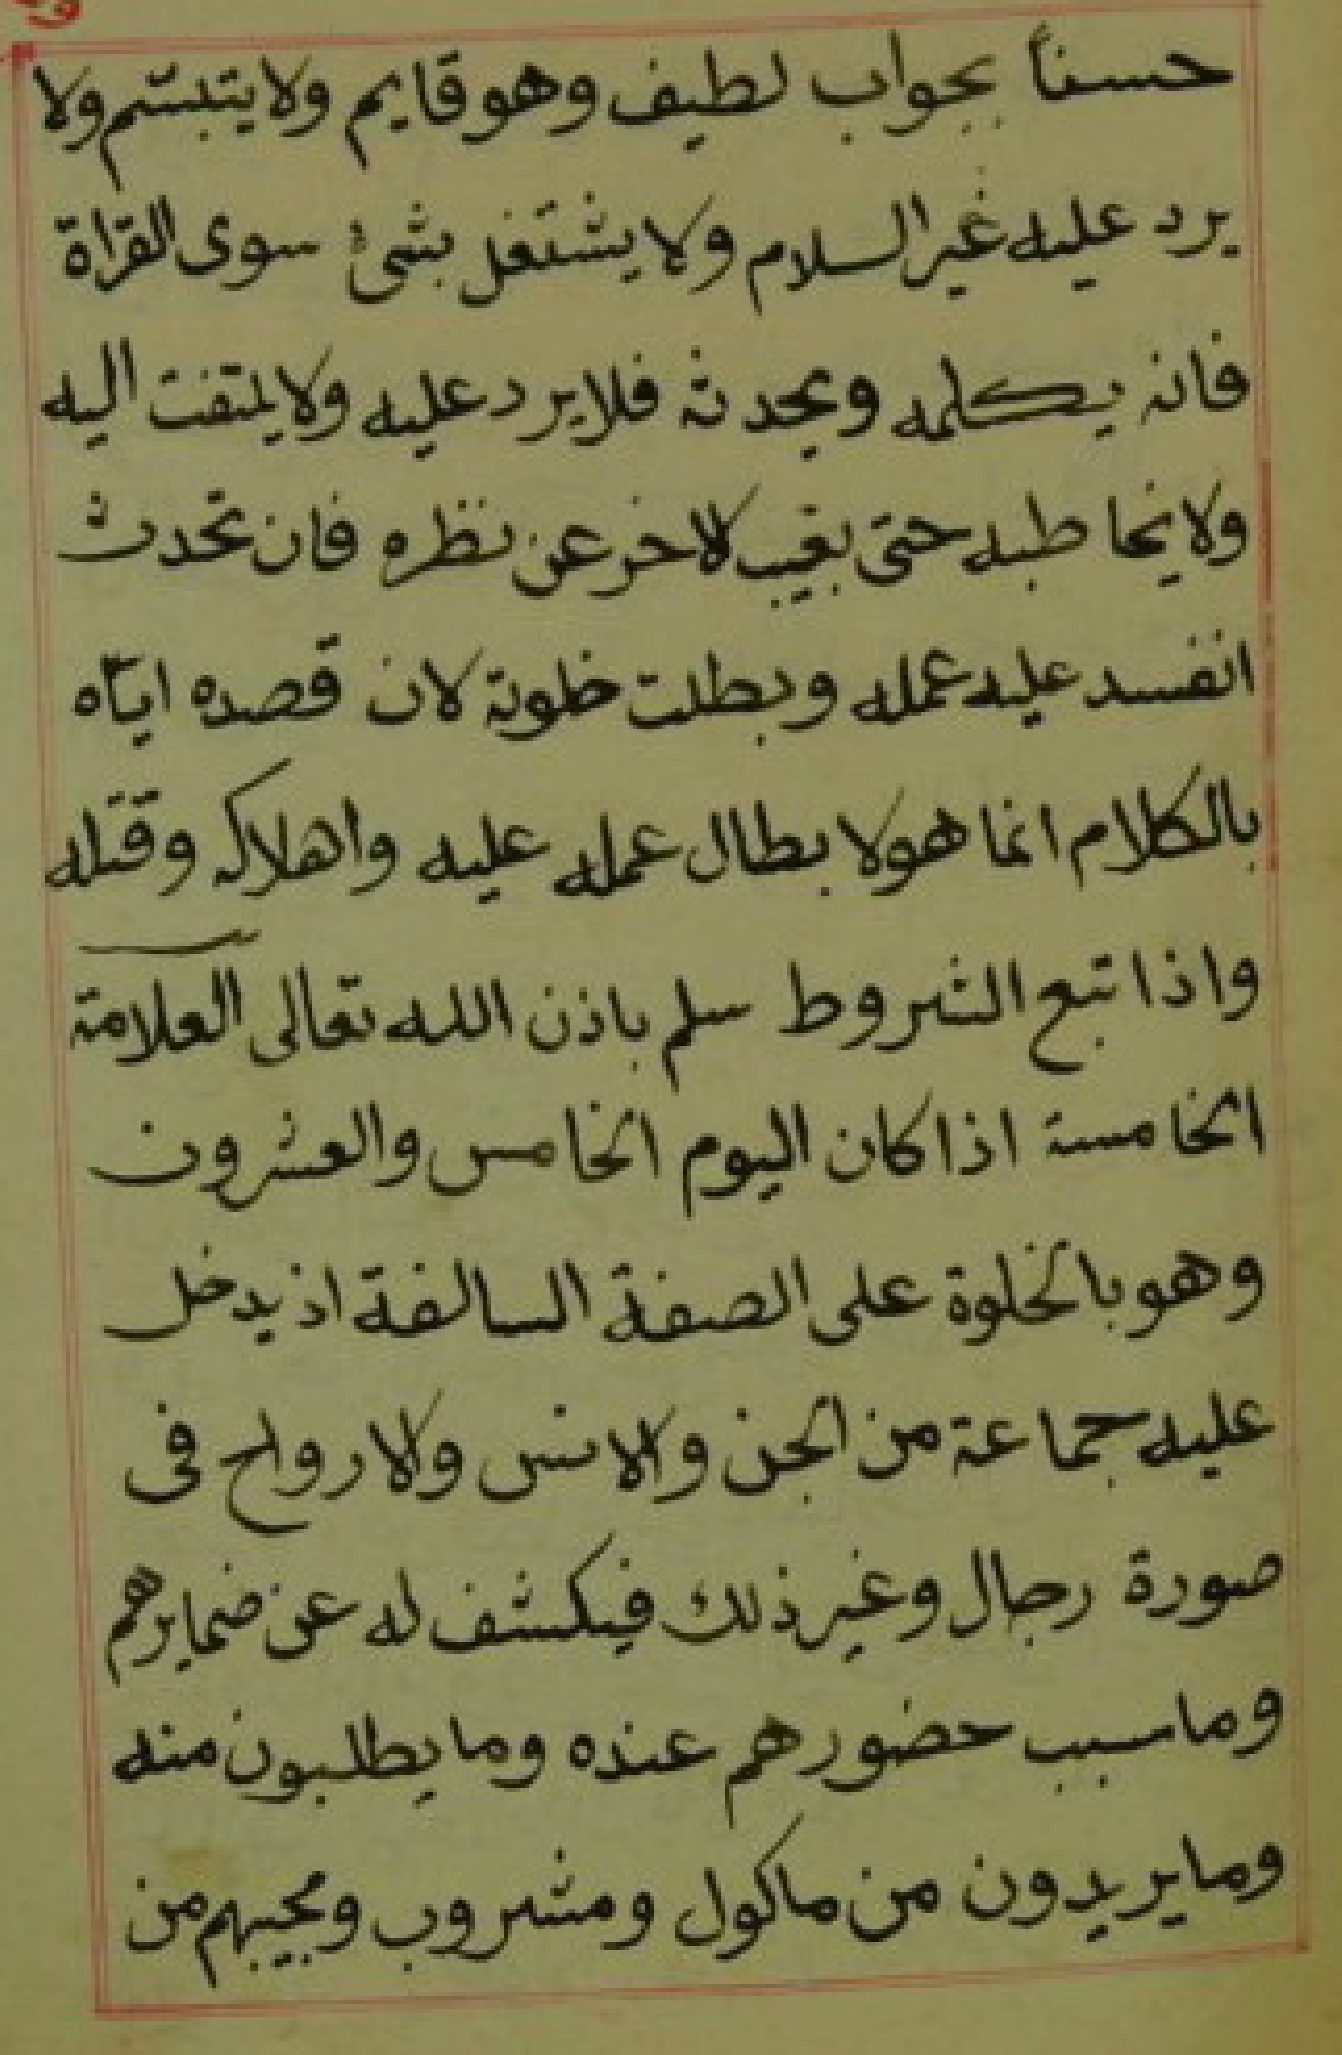 حسناً بجواب لطيف وهو قايم ولا يتبسّم ولا
يرد عليه غير السلام ولا يشتغل بشئ سوى القراة
فانه يكلمه ويحدثه فلا يرد عليه ولا يلتفت اليه
ولا يخاطبه حتى يغيب الاخر عن نظره فان تحدث
انفسد عليه عمله وبطلت خلوته لان قصده ايّاه
بالكلام انما هو لابطال عمله عليه واهلاكه وقتله
واذا تبع الشروط سلم باذن الله تعالى العلامة
الخامسة اذا كان اليوم الخامس والعشرون
وهو بالخلوة على الصفة السالفة اذ يدخل
عليه جماعة من الجن والانس والارواح فى
صورة رجال وغير ذلك فيكشف له عن ضمايرهم
وما سبب حضورهم عنده وما يطلبون منه
وما يريدون من ماكول ومشروب ويجيبهم من